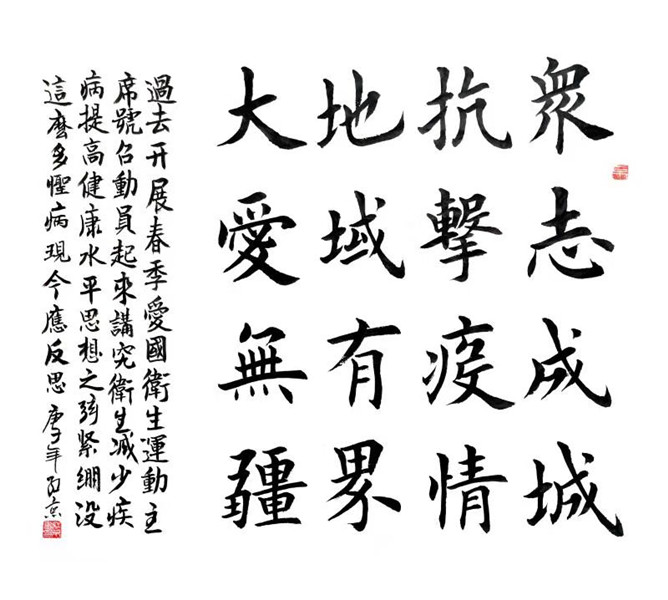 衆志成城
抗擊疫情
地域有界
大愛無疆
過去开展春季愛國衛生運動主
席號召動員起來講究衛生减少疾
病提高健康水平思想之弦緊绷没
這麽多怪病現今應反思 庚子年